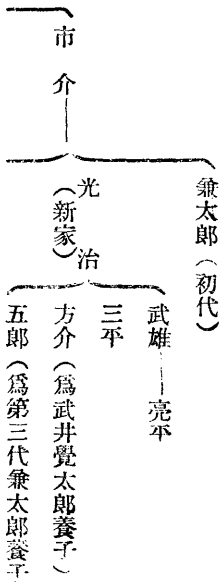 兼太郎（初代）
市介
光治（新家）
武雄
亮平
三平
方介（爲武井覺太郎養子）
五郎（爲第三代兼太郎養子